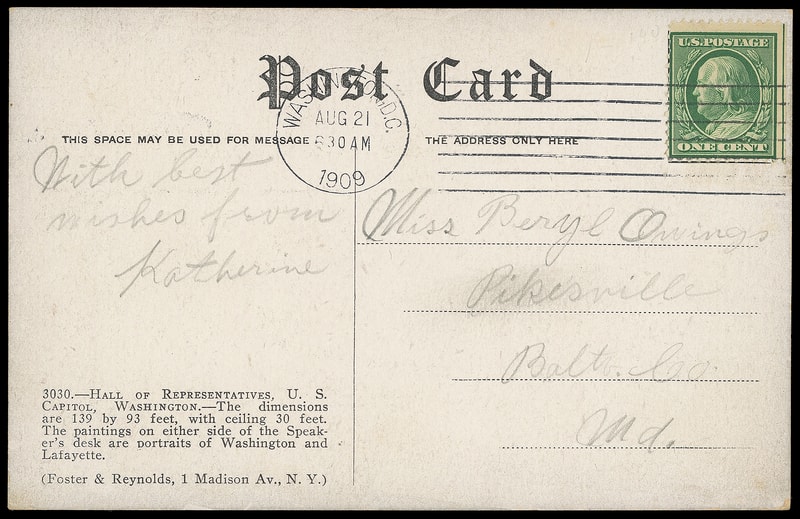 Post Card
U.S. POSTAGE
ONE CENT
WASHINGTON, D.C.
AUG 21
6 30 AM
1909
THIS SPACE MAY BE USED FOR MESSAGE
THE ADDRESS ONLY HERE
With best
wishes from
Katherine
Miss Beryl Owings
Pikesville
Balto. Co.
Md.
3030.—HALL OF REPRESENTATIVES, U. S.
CAPITOL, WASHINGTON.—The dimensions
are 139 by 93 feet, with ceiling 30 feet.
The paintings on either side of the Speak-
er's desk are portraits of Washington and
Lafayette.
(Foster & Reynolds, 1 Madison Av., N. Y.)